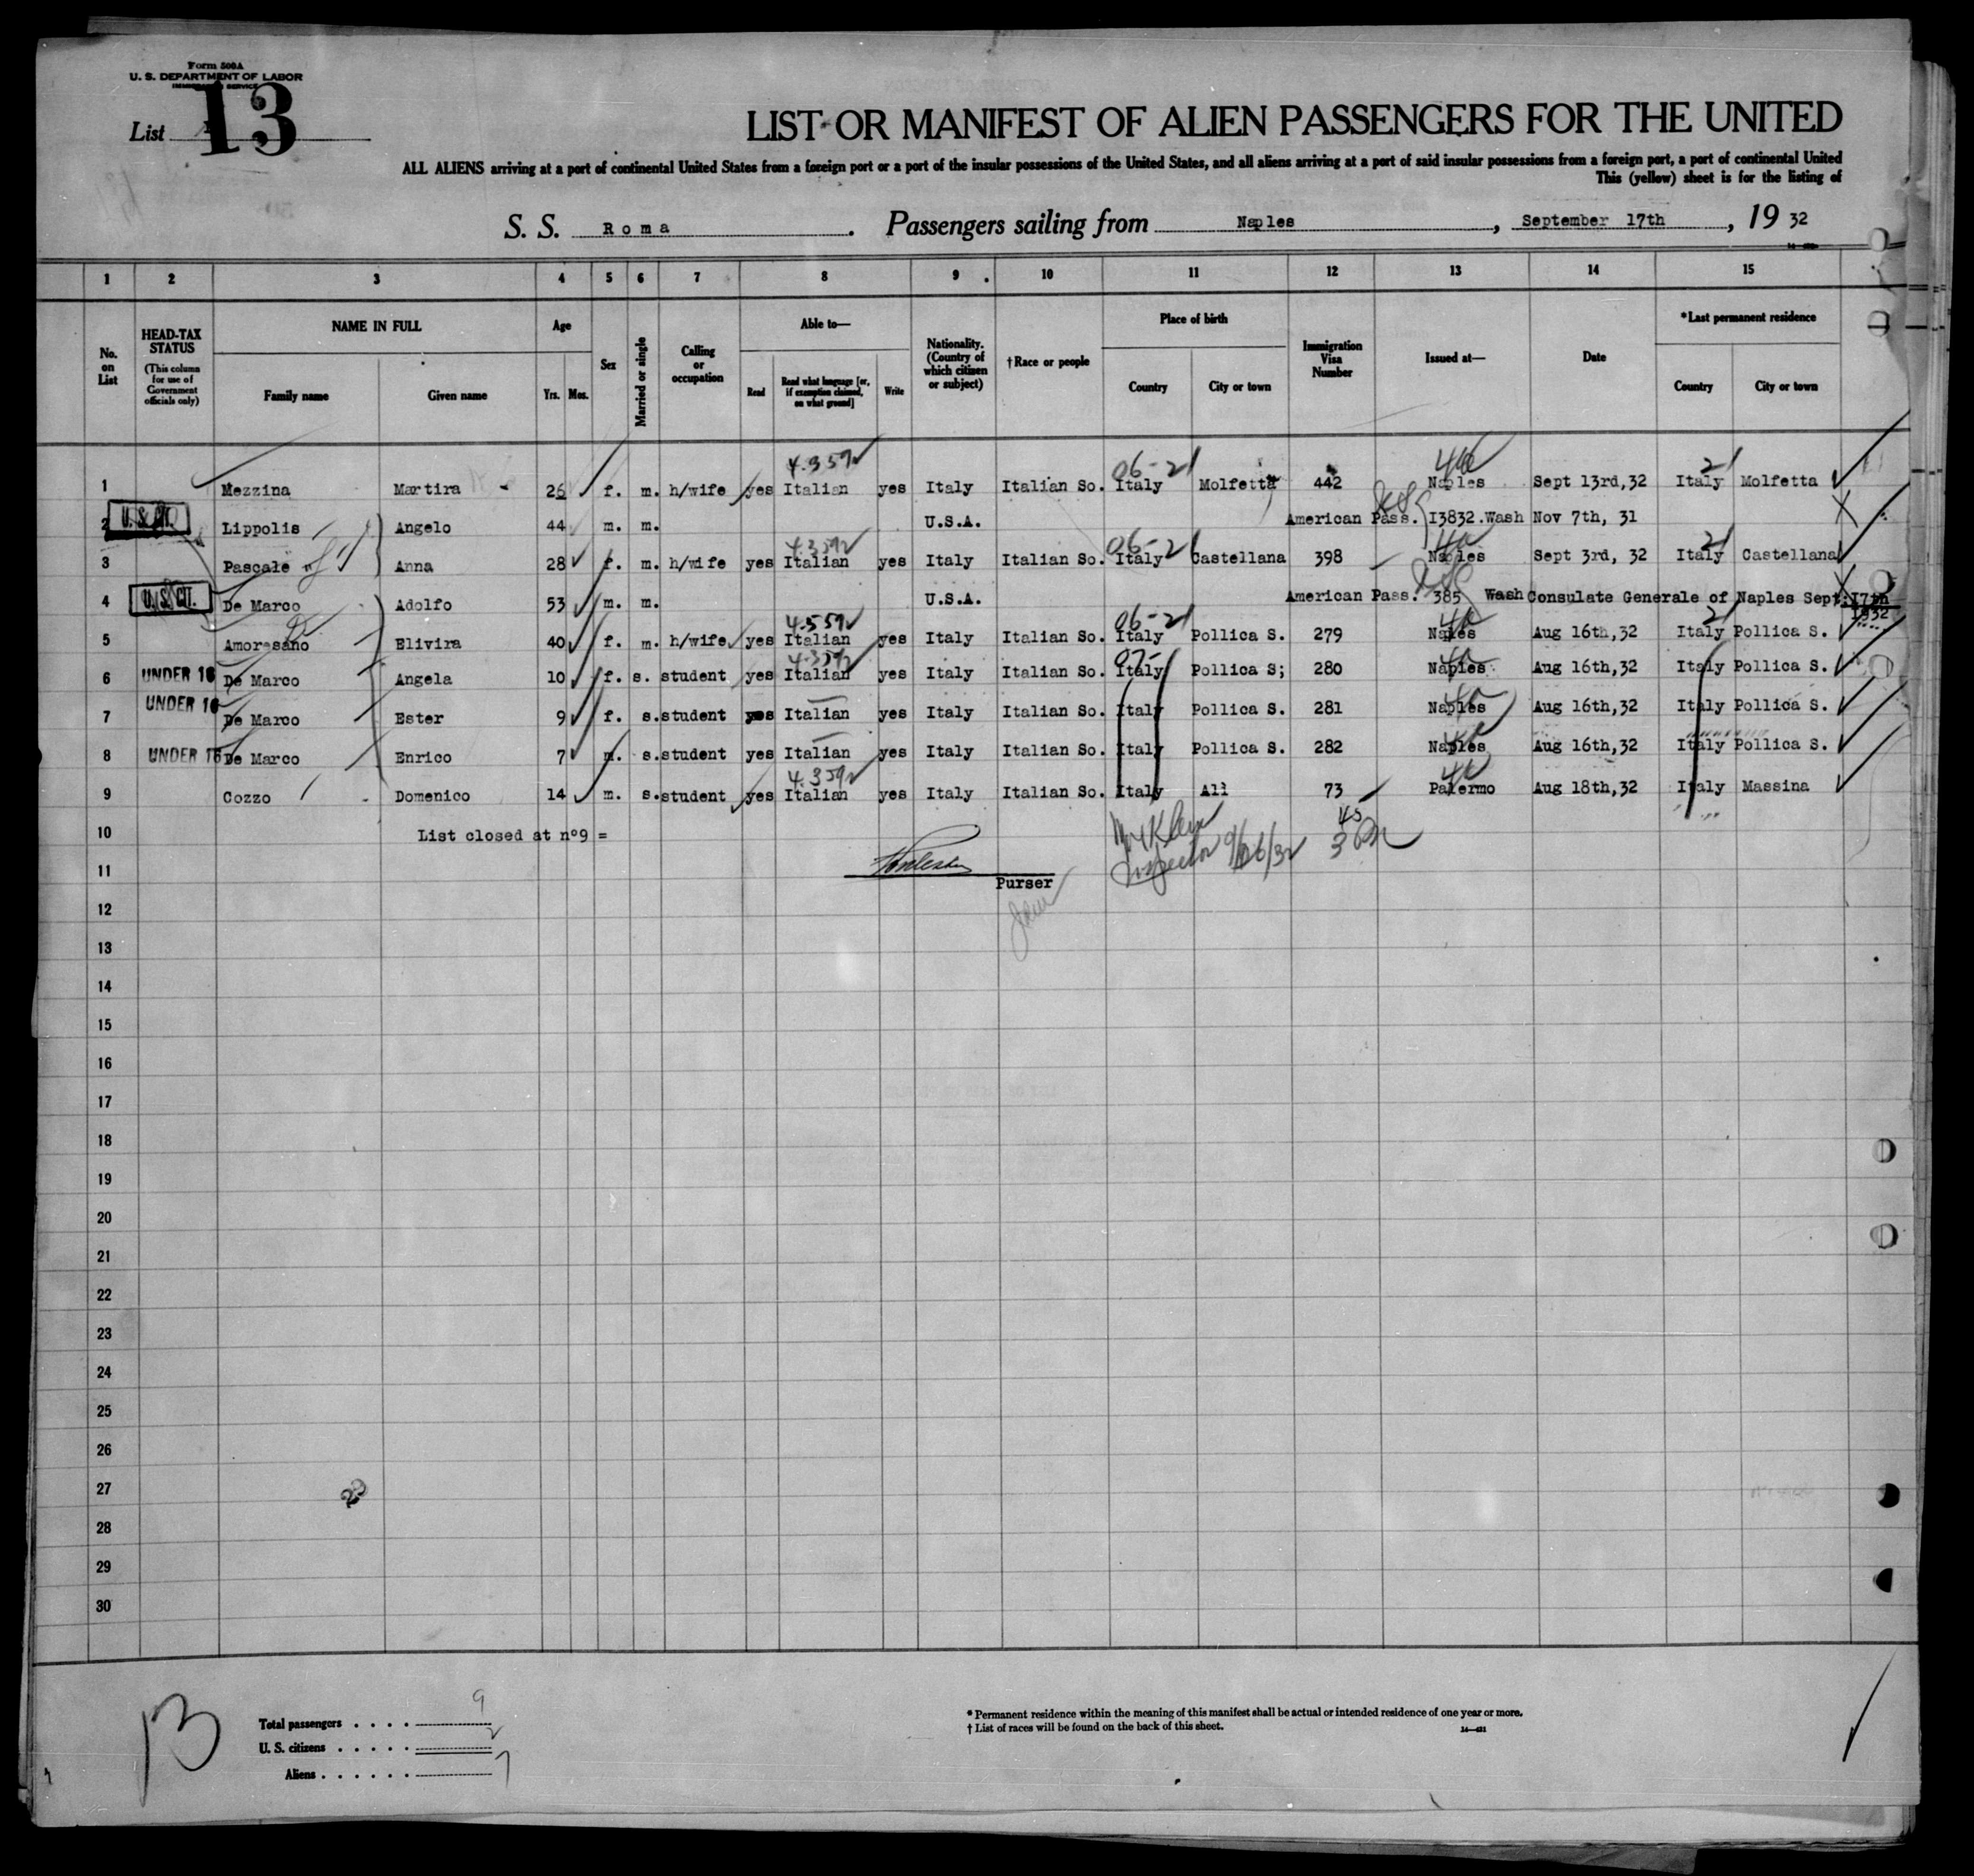 Form 500A
U. S. DEPARTMENT OF LABOR
IMMIGRATION SERVICE
List 13
LIST OR MANIFEST OF ALIEN PASSENGERS FOR THE UNITED
ALL ALIENS arriving at a port of continental United States from a foreign port or a port of the insular possessions of the United States, and all aliens arriving at a port of said insular possessions from a foreign port, a port of continental United
This (yellow) sheet is for the listing of
S. S. Roma. Passengers sailing from Naples, September 17th, 19 32
1 2 3 4 5 6 7 8 9 10 11 12 13 14 15
No. on List
HEAD-TAX STATUS (This column for use of Government officials only)
NAME IN FULL Family name Given name
Age Yrs. Mos.
Sex
Married or single
Calling or occupation
Able to— Read Read what language [or, if exemption claimed, on what ground] Write
Nationality. (Country of which citizen or subject)
†Race or people
Place of birth Country City or town
Immigration Visa Number
Issued at—
Date
*Last permanent residence Country City or town
1 Mezzina Martira 26 f. m. h/wife yes Italian yes Italy Italian So. Italy Molfetta 442 Naples Sept 13rd,32 Italy Molfetta
2 U.S. CIT. Lippolis Angelo 44 m. m. U.S.A. American Pass. I3832.Wash Nov 7th, 31
3 Pascale Anna 28 f. m. h/wife yes Italian yes Italy Italian So. Italy Castellana 398 Naples Sept 3rd, 32 Italy Castellana
4 U.S. CIT. De Marco Adolfo 53 m. m. U.S.A. American Pass. 385 Wash Consulate Generale of Naples Sept.I7th 1932
5 Amoresano Elivira 40 f. m. h/wife yes Italian yes Italy Italian So. Italy Pollica S. 279 Naples Aug 16th,32 Italy Pollica S.
6 UNDER 16 De Marco Angela 10 f. s. student yes Italian yes Italy Italian So. Italy Pollica S; 280 Naples Aug 16th,32 Italy Pollica S.
7 UNDER 16 De Marco Ester 9 f. s. student yes Italian yes Italy Italian So. Italy Pollica S. 281 Naples Aug 16th,32 Italy Pollica S.
8 UNDER 16 De Marco Enrico 7 m. s. student yes Italian yes Italy Italian So. Italy Pollica S. 282 Naples Aug 16th,32 Italy Pollica S.
9 Cozzo Domenico 14 m. s. student yes Italian yes Italy Italian So. Italy Alì 73 Palermo Aug 18th,32 Italy Massina
10 List closed at nº9 =
11
Purser
Inspector 9/26/32
12
13
14
15
16
17
18
19
20
21
22
23
24
25
26
27
28
29
30
13
Total passengers . . . . 9
U. S. citizens . . . . . 2
Aliens . . . . . . 7
* Permanent residence within the meaning of this manifest shall be actual or intended residence of one year or more.
† List of races will be found on the back of this sheet.